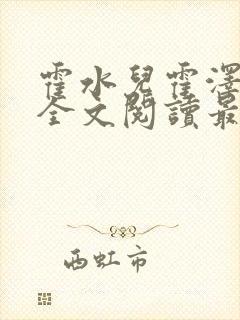 霍水兒霍澤
全文閱讀最
西虹市